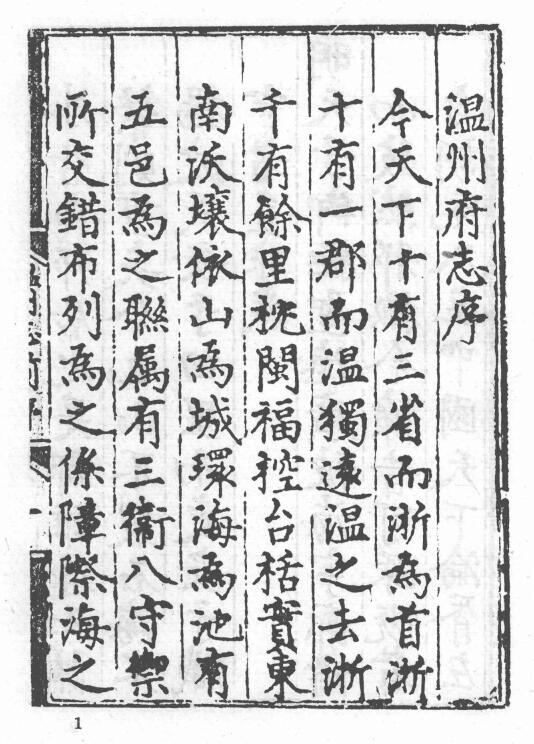 温州府志序
今天下十有三省而浙為首浙
十有一郡而温獨遠温之去浙
千有餘里枕閩福控台括實東
南沃壤依山為城環海為池有
五邑為之聯属有三衞八守禦
所交錯布列為之保障際海之
1